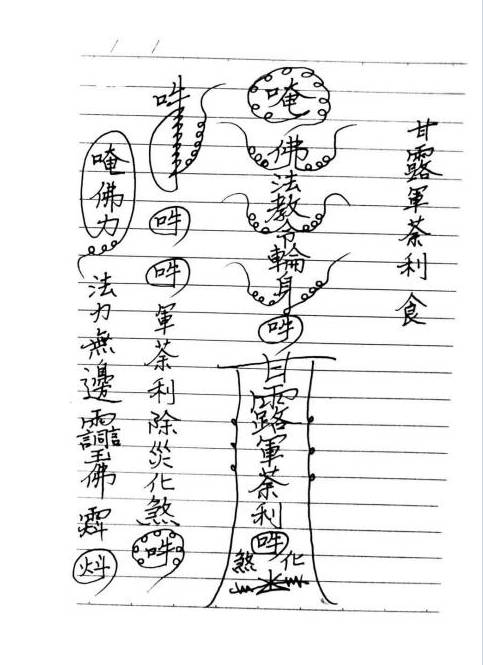 甘露軍荼利 食
唵
佛法教令輪身
吽
甘露軍荼利
吽
煞 化
吽
吽
吽
軍荼利除災化煞
吽
唵佛力
法力無邊
佛